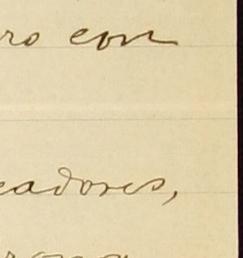 ro con
eadores,